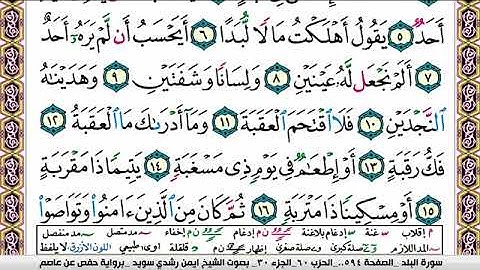 أَحَدٌ ٥ يَقُولُ أَهْلَكْتُ مَالًا لُّبَدًا ٦ أَيَحْسَبُ أَن لَّمْ يَرَهُۥٓ أَحَدٌ
٧ أَلَمْ نَجْعَل لَّهُۥ عَيْنَيْنِ ٨ وَلِسَانًا وَشَفَتَيْنِ ٩ وَهَدَيْنَٰهُ
ٱلنَّجْدَيْنِ ١٠ فَلَا ٱقْتَحَمَ ٱلْعَقَبَةَ ١١ وَمَآ أَدْرَىٰكَ مَا ٱلْعَقَبَةُ ١٢
فَكُّ رَقَبَةٍ ١٣ أَوْ إِطْعَٰمٌ فِى يَوْمٍ ذِى مَسْغَبَةٍ ١٤ يَتِيمًا ذَا مَقْرَبَةٍ
١٥ أَوْ مِسْكِينًا ذَا مَتْرَبَةٍ ١٦ ثُمَّ كَانَ مِنَ ٱلَّذِينَ ءَامَنُوا۟ وَتَوَاصَوْا۟
م إقلاب غنة إدغام بلاغنة إدغام إخفاء مد متصل مد منفصل
المد اللازم صلة كبرى صلة صغرى إظهار قلقلة طبيعي اللون الأزرق لا يلفظ
سورة البلد _ الصفحة ٥٩٤_ الحزب ٦٠_ الجزء ٣٠_ بصوت الشيخ ايمن رشدي سويد _ برواية حفص عن عاصم